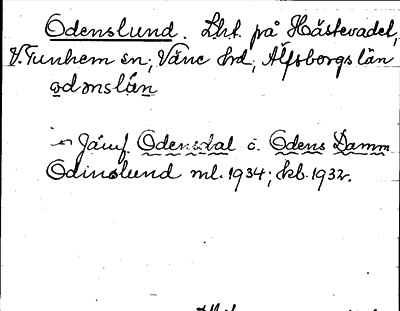 Odenslund. Lht. på Hästevadet,
V. Tunhem sn; Väne hd; Älfsborgs län
ọdənslán
Jämf. Odensdal o. Odens Damm
Odinslund ml. 1934; kb. 1932.